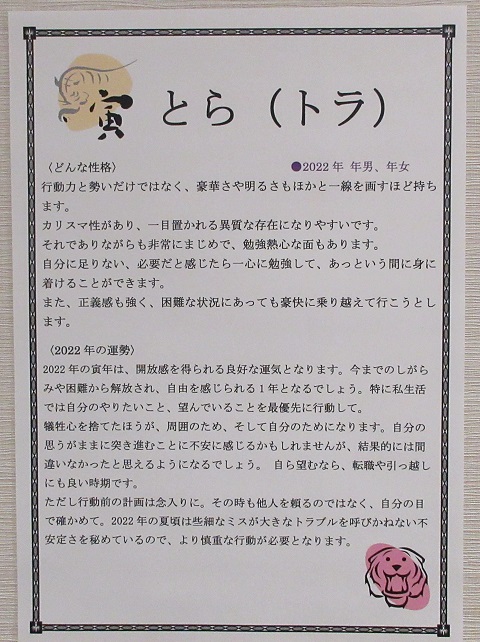 寅 とら（トラ）
〈どんな性格〉 ●2022年 年男、年女
行動力と勢いだけではなく、豪華さや明るさもほかと一線を画すほど持ち
ます。
カリスマ性があり、一目置かれる異質な存在になりやすいです。
それでありながらも非常にまじめで、勉強熱心な面もあります。
自分に足りない、必要だと感じたら一心に勉強して、あっという間に身に
着けることができます。
また、正義感も強く、困難な状況にあっても豪快に乗り越えて行こうとし
ます。
〈2022年の運勢〉
2022年の寅年は、開放感を得られる良好な運気となります。今までのしがら
みや困難から解放され、自由を感じられる1年となるでしょう。特に私生活
では自分のやりたいこと、望んでいることを最優先に行動して。
犠牲心を捨てたほうが、周囲のため、そして自分のためになります。自分の
思うがままに突き進むことに不安に感じるかもしれませんが、結果的には間
違いなかったと思えるようになるでしょう。 自ら望むなら、転職や引っ越し
にも良い時期です。
ただし行動前の計画は念入りに。その時も他人を頼るのではなく、自分の目
で確かめて。2022年の夏頃は些細なミスが大きなトラブルを呼びかねない不
安定さを秘めているので、より慎重な行動が必要となります。